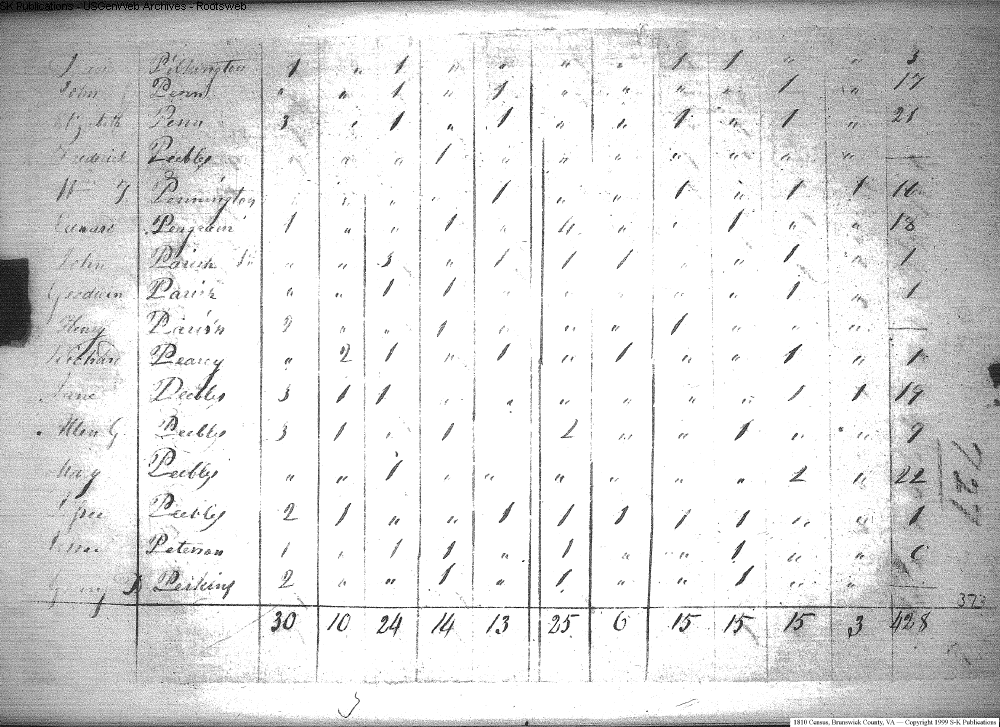 SK Publications - USGenWeb Archives - Rootsweb
Pilkington 1 " 1 " " " " 1 1 " " 3
John Penn " " 1 " 1 " " " " 1 " 17
Elizabeth Penn 3 " 1 " 1 " " 1 " 1 " 28
Frederick Peebles " " " 1 " " " " " " " —
Wm Pennington " " " 1 " " 1 " 1 1 16
Edward 1 " " 1 " 4 " " 1 " " 18
John Parish Sr " " 3 " 1 1 1 " " 1 " 1
Goodwin Parish " " 1 1 " " " " " 1 " 1
Henry Parish 2 " " 1 " " " 1 " " " —
Pearcy " 2 1 " 1 " 1 " " 1 " 1
Peebles 3 1 1 " " " " " " 1 1 19
Allen G. Peebles 3 1 " 1 2 " " 1 " " 9
Mary Peebles " " 1 " " " " " 2 " 22
Peebles 2 1 " " 1 1 1 1 1 " " 1
Peterson 1 " 1 1 " 1 " " 1 " " 6
Perkins 2 " " 1 " 1 " " 1 " " —
373
30 10 24 14 13 25 6 15 15 15 3 428
1810 Census, Brunswick County, VA — Copyright 1999 S-K Publications